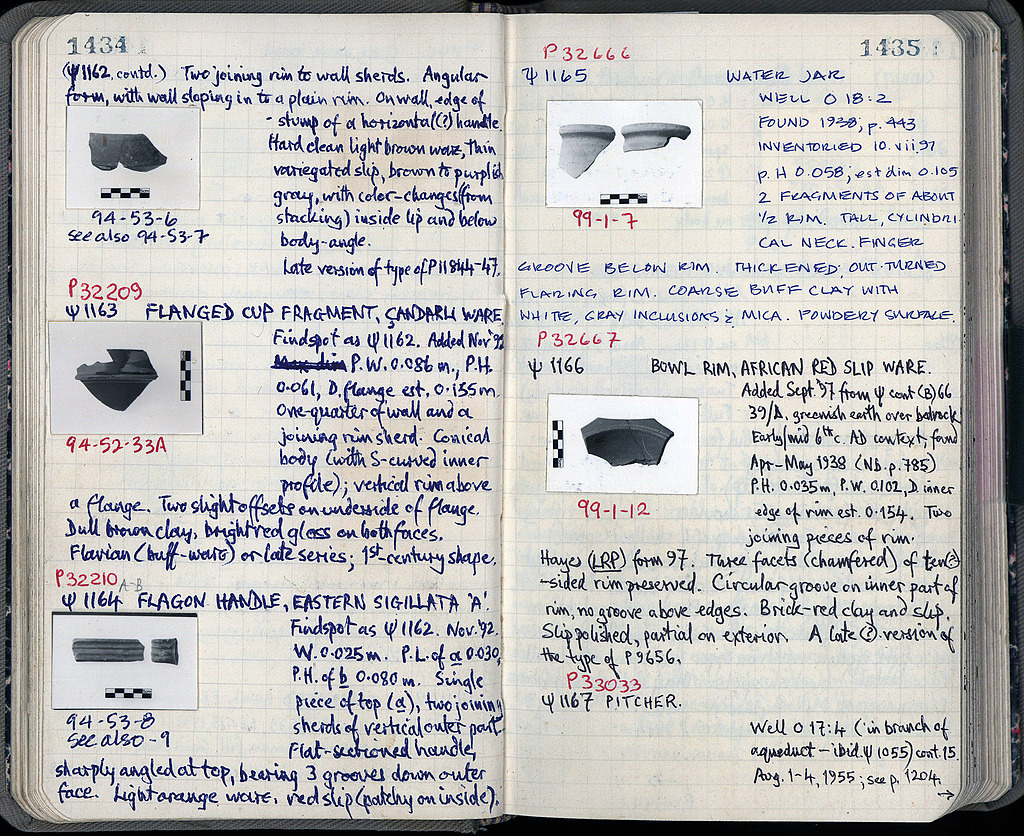 1434
(Ψ1162, contd.) Two joining rim to wall sherds. Angular
form, with wall sloping in to a plain rim. On wall, edge of
stump of a horizontal(?) handle.
Hard clean light brown ware, thin
variegated slip, brown to purplish
gray, with color-changes (from
stacking) inside lip and below
body-angle.
Late version of type of P11844-47.
94-53-6
see also 94-53-7
P32209
Ψ1163 FLANGED CUP FRAGMENT, ÇANDARLI WARE
Findspot as Ψ1162. Added Nov '92
Max dim P.W. 0.086 m., P.H.
0.061, D. flange est. 0.135m
One-quarter of wall and a
joining rim sherd. Conical
body (with S-curved inner
profile); vertical rim above
94-52-33A
a flange. Two slight offsets on underside of flange.
Dull brown clay, bright red gloss on both faces.
Flavian (buff-ware) or late series; 1st-century shape.
P32210 A-B
Ψ1164 FLAGON HANDLE, EASTERN SIGILLATA 'A'.
Findspot as Ψ1162. Nov. '92.
W. 0.025 m. P.L. of a 0.030,
P.H. of b 0.080 m. Single
piece of top (a), two joining
sherds of vertical outer part
Flat-sectioned handle,
94-53-8
See also -9
sharply angled at top, bearing 3 grooves down outer
face. Light orange ware, red slip (patchy on inside).
1435
P32666
Ψ1165 WATER JAR
WELL O 18:2
FOUND 1938; p. 443
INVENTORIED 10.vii.97
p.H 0.058; est dim 0.105
2 FRAGMENTS OF ABOUT
1/2 RIM. TALL, CYLINDRI-
CAL NECK. FINGER
99-1-7
GROOVE BELOW RIM. THICKENED, OUT-TURNED
FLARING RIM. COARSE BUFF CLAY WITH
WHITE, GRAY INCLUSIONS & MICA. POWDERY SURFACE.
P32667
Ψ1166 BOWL RIM, AFRICAN RED SLIP WARE.
Added Sept. '97 from Ψ cont (B) 66
39/Δ, greenish earth over bedrock
Early/mid 6th c. AD context, found
Apr-May 1938 (NB. p. 785)
P.H. 0.035m, P.W. 0.102, D. inner
edge of rim est. 0.154. Two
joining pieces of rim.
99-1-12
Hayes (LRP) form 97. Three facets (chamfered) of ten(?)
-sided rim preserved. Circular groove on inner part of
rim, no groove above edges. Brick-red clay and slip.
Slip polished, partial on exterior. A late (?) version of
the type of P9656.
P33033
Ψ1167 PITCHER.
Well O 17:4 (in branch of
aqueduct – ibid. Ψ 1055) cont. 15.
Aug. 1-4, 1955; see p. 1204.
→